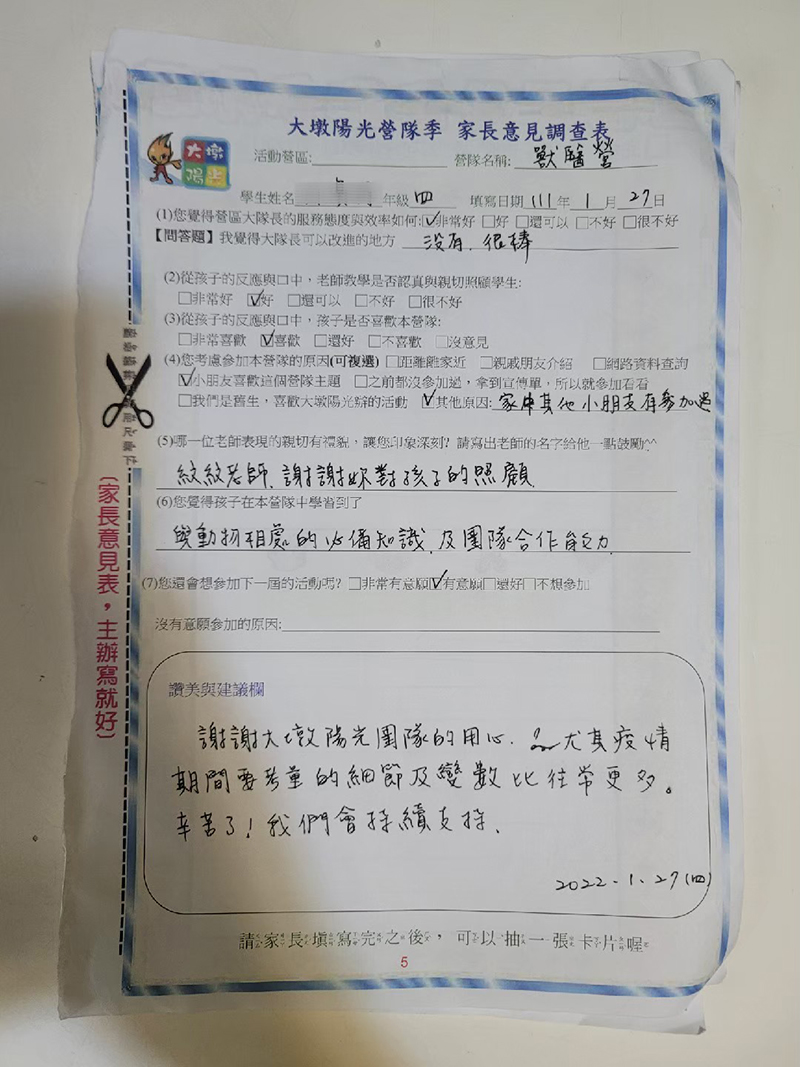 大墩陽光營隊季 家長意見調查表
大墩
陽光
活動營區: 營隊名稱: 獸醫營
學生姓名 年級 四 填寫日期 111 年 1 月 27 日
(1)您覺得營區大隊長的服務態度與效率如何: ☑非常好 □好 □還可以 □不好 □很不好
【問答題】我覺得大隊長可以改進的地方 沒有. 很棒
(2)從孩子的反應與口中，老師教學是否認真與親切照顧學生:
□非常好 ☑好 □還可以 □不好 □很不好
(3)從孩子的反應與口中，孩子是否喜歡本營隊:
□非常喜歡 ☑喜歡 □還好 □不喜歡 □沒意見
(4)您考慮參加本營隊的原因(可複選) □距離離家近 □親戚朋友介紹 □網路資料查詢
☑小朋友喜歡這個營隊主題 □之前都沒參加過，拿到宣傳單，所以就參加看看
□我們是舊生，喜歡大墩陽光辦的活動 ☑其他原因: 家中其他小朋友有參加過
(5)哪一位老師表現的親切有禮貌，讓您印象深刻? 請寫出老師的名字給他一點鼓勵^^
紋紋老師. 謝謝妳對孩子的照顧
(6)您覺得孩子在本營隊中學習到了
與動物相處的必備知識. 及團隊合作能力
(7)您還會想參加下一屆的活動嗎? □非常有意願 ☑有意願 □還好 □不想參加
沒有意願參加的原因:
讚美與建議欄
謝謝大墩陽光團隊的用心. 尤其疫情
期間要考量的細節及變數比往常更多。
辛苦了! 我們會持續支持.
2022.1.27(四)
請家長填寫完之後，可以抽一張卡片喔
5
〔家長意見表，主辦寫就好〕